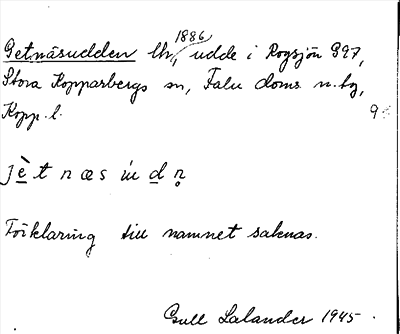 1886
Getnäsudden lh., udde i Rogsjön 997,
Stora Kopparbergs sn, Falu doms. n. tg,
Kopp. l. 9
jè t n æ s ú d n̥
Förklaring till namnet saknas.
Gull Lalander 1945.